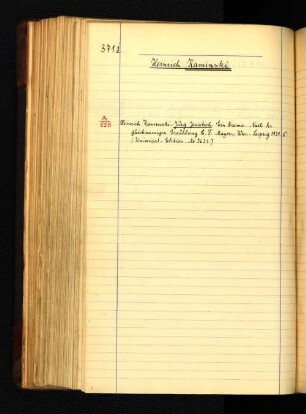 3712
Heinrich Kaminski
A
525
Heinrich Kaminski. Jürg Jenatsch. Ein Drama. Nach der
gleichnamigen Erzählung C. F. Meyer. Wien-Leipzig 1929. 8°
(Universal-Edition. No. 9631.)